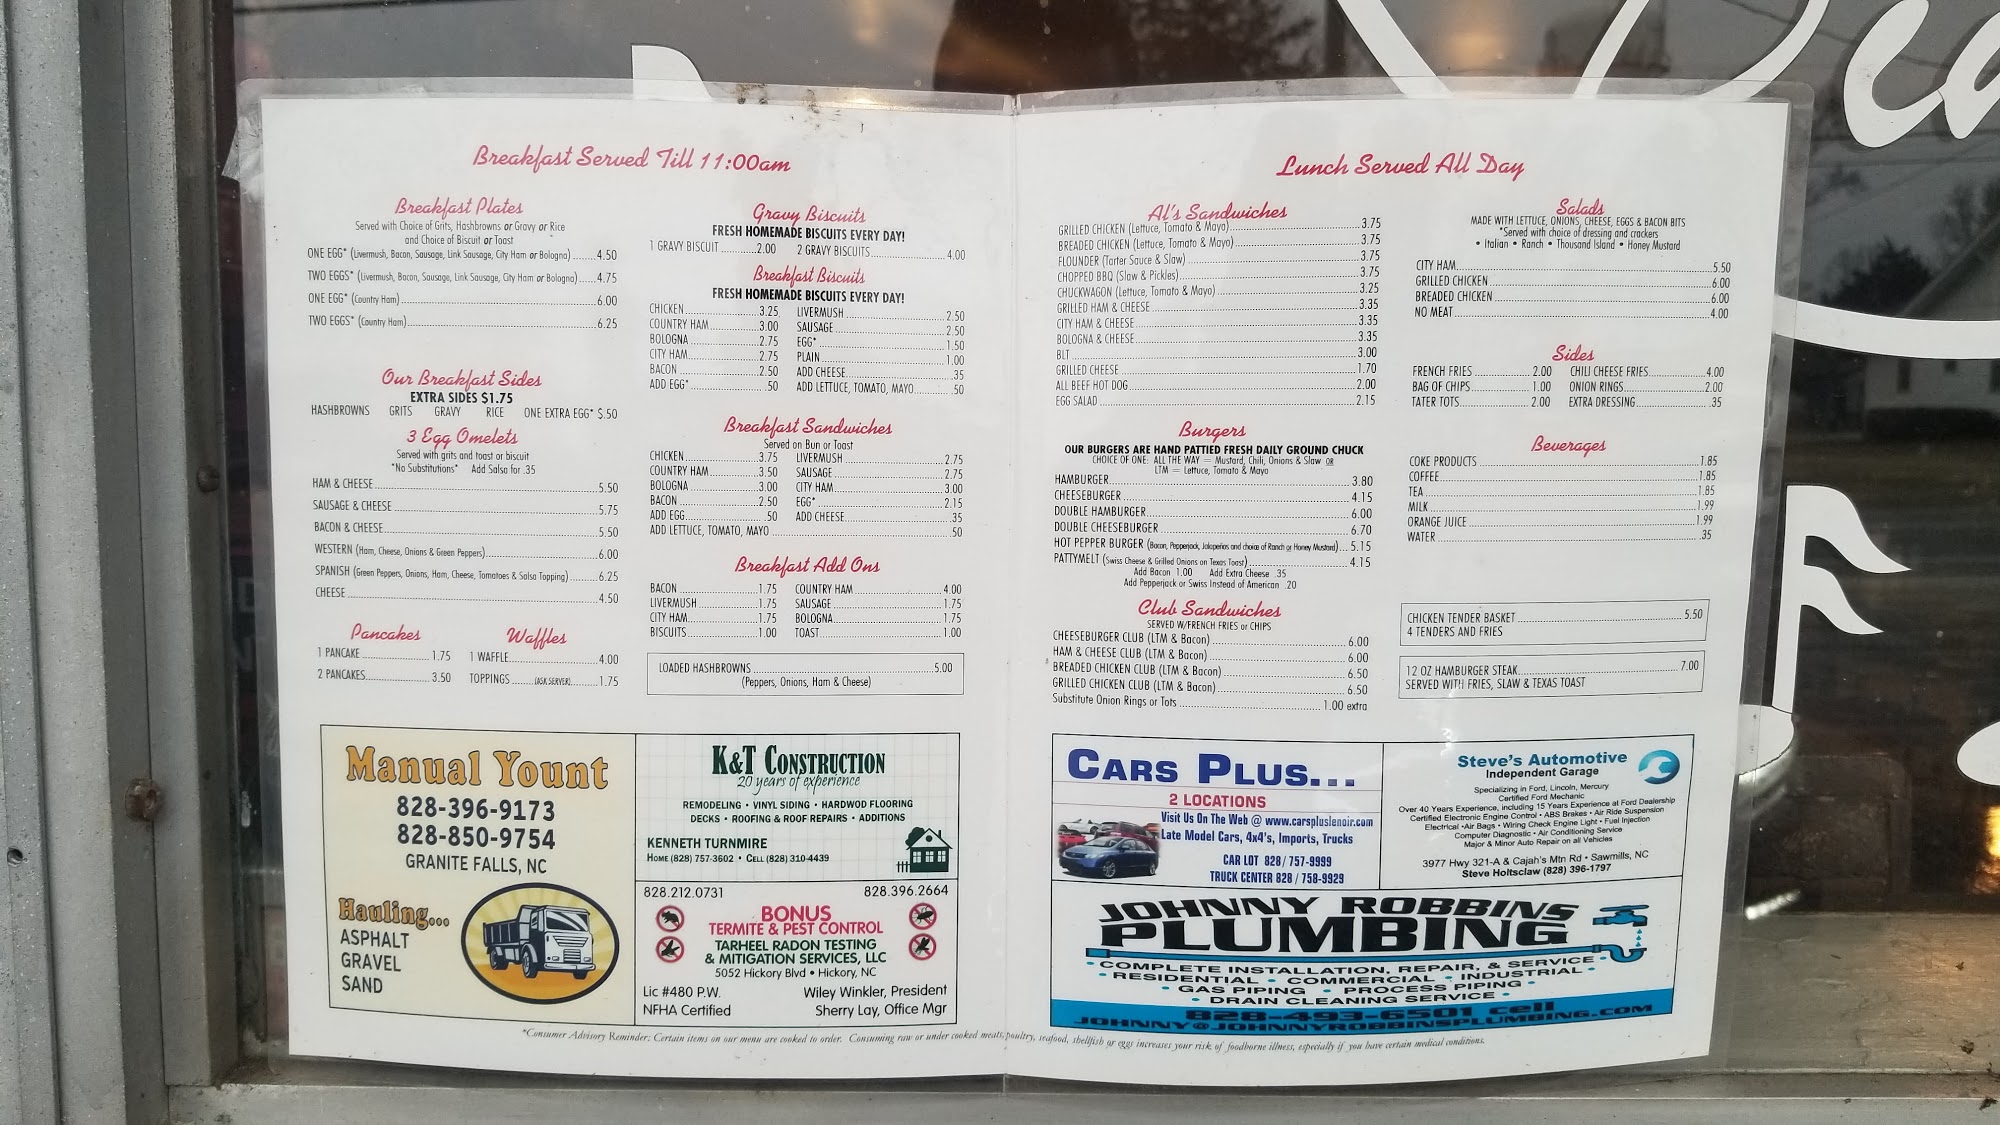 Breakfast Served Till 11:00am
Breakfast Plates
Served with Choice of Grits, Hashbrowns or Gravy or Rice
and Choice of Biscuit or Toast
ONE EGG* (Livermush, Bacon, Sausage, Link Sausage, City Ham or Bologna) 4.50
TWO EGGS* (Livermush, Bacon, Sausage, Link Sausage, City Ham or Bologna) 4.75
ONE EGG* (Country Ham) 6.00
TWO EGGS* (Country Ham) 6.25
Our Breakfast Sides
EXTRA SIDES $1.75
HASHBROWNS GRITS GRAVY RICE ONE EXTRA EGG* $.50
3 Egg Omelets
Served with grits and toast or biscuit
*No Substitutions* Add Salsa for .35
HAM & CHEESE 5.50
SAUSAGE & CHEESE 5.75
BACON & CHEESE 5.50
WESTERN (Ham, Cheese, Onions & Green Peppers) 6.00
SPANISH (Green Peppers, Onions, Ham, Cheese, Tomatoes & Salsa Topping) 6.25
CHEESE 4.50
Pancakes
1 PANCAKE 1.75
2 PANCAKES 3.50
Waffles
1 WAFFLE 4.00
TOPPINGS (ASK SERVER) 1.75
Gravy Biscuits
FRESH HOMEMADE BISCUITS EVERY DAY!
1 GRAVY BISCUIT 2.00 2 GRAVY BISCUITS 4.00
Breakfast Biscuits
FRESH HOMEMADE BISCUITS EVERY DAY!
CHICKEN 3.25 LIVERMUSH 2.50
COUNTRY HAM 3.00 SAUSAGE 2.50
BOLOGNA 2.75 EGG* 1.50
CITY HAM 2.75 PLAIN 1.00
BACON 2.50 ADD CHEESE .35
ADD EGG* .50 ADD LETTUCE, TOMATO, MAYO .50
Breakfast Sandwiches
Served on Bun or Toast
CHICKEN 3.75 LIVERMUSH 2.75
COUNTRY HAM 3.50 SAUSAGE 2.75
BOLOGNA 3.00 CITY HAM 3.00
BACON 2.50 EGG* 2.15
ADD EGG .50 ADD CHEESE .35
ADD LETTUCE, TOMATO, MAYO .50
Breakfast Add Ons
BACON 1.75 COUNTRY HAM 4.00
LIVERMUSH 1.75 SAUSAGE 1.75
CITY HAM 1.75 BOLOGNA 1.75
BISCUITS 1.00 TOAST 1.00
LOADED HASHBROWNS 5.00
(Peppers, Onions, Ham & Cheese)
Manual Yount
828-396-9173
828-850-9754
GRANITE FALLS, NC
Hauling...
ASPHALT
GRAVEL
SAND
K&T CONSTRUCTION
20 years of experience
REMODELING • VINYL SIDING • HARDWOD FLOORING
DECKS • ROOFING & ROOF REPAIRS • ADDITIONS
KENNETH TURNMIRE
HOME (828) 757-3602 • CELL (828) 310-4439
828.212.0731 828.396.2664
BONUS
TERMITE & PEST CONTROL
TARHEEL RADON TESTING
& MITIGATION SERVICES, LLC
5052 Hickory Blvd • Hickory, NC
Lic #480 P.W. Wiley Winkler, President
NFHA Certified Sherry Lay, Office Mgr
Lunch Served All Day
Al's Sandwiches
GRILLED CHICKEN (Lettuce, Tomato & Mayo) 3.75
BREADED CHICKEN (Lettuce, Tomato & Mayo) 3.75
FLOUNDER (Tarter Sauce & Slaw) 3.75
CHOPPED BBQ (Slaw & Pickles) 3.75
CHUCKWAGON (Lettuce, Tomato & Mayo) 3.25
GRILLED HAM & CHEESE 3.35
CITY HAM & CHEESE 3.35
BOLOGNA & CHEESE 3.35
BLT 3.00
GRILLED CHEESE 1.70
ALL BEEF HOT DOG 2.00
EGG SALAD 2.15
Burgers
OUR BURGERS ARE HAND PATTIED FRESH DAILY GROUND CHUCK
CHOICE OF ONE: ALL THE WAY = Mustard, Chili, Onions & Slaw OR
LTM = Lettuce, Tomato & Mayo
HAMBURGER 3.80
CHEESEBURGER 4.15
DOUBLE HAMBURGER 6.00
DOUBLE CHEESEBURGER 6.70
HOT PEPPER BURGER (Bacon, Pepperjack, Jalapeños and choice of Ranch or Honey Mustard) 5.15
PATTYMELT (Swiss Cheese & Grilled Onions on Texas Toast) 4.15
Add Bacon 1.00 Add Extra Cheese .35
Add Pepperjack or Swiss Instead of American .20
Club Sandwiches
SERVED W/FRENCH FRIES or CHIPS
CHEESEBURGER CLUB (LTM & Bacon) 6.00
HAM & CHEESE CLUB (LTM & Bacon) 6.00
BREADED CHICKEN CLUB (LTM & Bacon) 6.50
GRILLED CHICKEN CLUB (LTM & Bacon) 6.50
Substitute Onion Rings or Tots 1.00 extra
Salads
MADE WITH LETTUCE, ONIONS, CHEESE, EGGS & BACON BITS
*Served with choice of dressing and crackers
• Italian • Ranch • Thousand Island • Honey Mustard
CITY HAM 5.50
GRILLED CHICKEN 6.00
BREADED CHICKEN 6.00
NO MEAT 4.00
Sides
FRENCH FRIES 2.00 CHILI CHEESE FRIES 4.00
BAG OF CHIPS 1.00 ONION RINGS 2.00
TATER TOTS 2.00 EXTRA DRESSING .35
Beverages
COKE PRODUCTS 1.85
COFFEE 1.85
TEA 1.85
MILK 1.99
ORANGE JUICE 1.99
WATER .35
CHICKEN TENDER BASKET 5.50
4 TENDERS AND FRIES
12 OZ HAMBURGER STEAK 7.00
SERVED WITH FRIES, SLAW & TEXAS TOAST
CARS PLUS...
2 LOCATIONS
Visit Us On The Web @ www.carspluslenoir.com
Late Model Cars, 4x4's, Imports, Trucks
CAR LOT 828/ 757-9999
TRUCK CENTER 828 / 758-9929
Steve's Automotive
Independent Garage
Specializing in Ford, Lincoln, Mercury
Certified Ford Mechanic
Over 40 Years Experience, including 15 Years Experience at Ford Dealership
Certified Electronic Engine Control • ABS Brakes • Air Ride Suspension
Electrical • Air Bags • Wiring Check Engine Light • Fuel Injection
Computer Diagnostic • Air Conditioning Service
Major & Minor Auto Repair on all Vehicles
3977 Hwy 321-A & Cajah's Mtn Rd • Sawmills, NC
Steve Holtsclaw (828) 396-1797
JOHNNY ROBBINS
PLUMBING
• COMPLETE INSTALLATION, REPAIR, & SERVICE •
• RESIDENTIAL • COMMERCIAL • INDUSTRIAL •
• GAS PIPING • PROCESS PIPING •
• DRAIN CLEANING SERVICE •
828-493-6501 cell
JOHNNY@JOHNNYROBBINSPLUMBING.COM
*Consumer Advisory Reminder: Certain items on our menu are cooked to order. Consuming raw or under cooked meats, poultry, seafood, shellfish or eggs increases your risk of foodborne illness, especially if you have certain medical conditions.